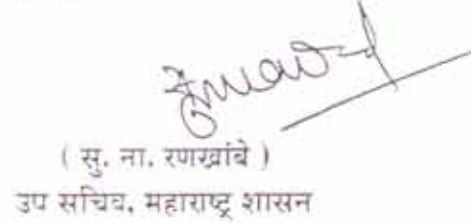 ( सु. ना. रणखांबे )
उप सचिव, महाराष्ट्र शासन